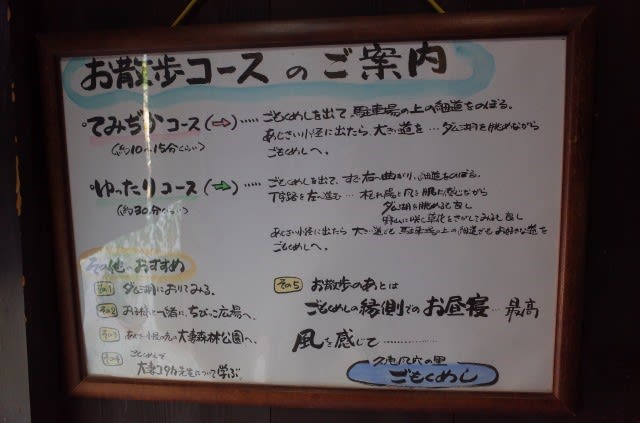 お散歩コースのご案内
・てみぢかコース(⇨)‥‥‥ごもくめしを出て、駐車場の上の細道をのぼる。
あじさい小径に出たら、大きい道を…ダム湖を眺めながら
(約10〜15分くらい)
ごもくめしへ。
・ゆったりコース(⇨)‥‥‥ごもくめしを出て、すぐ右へ曲がり、細道をのぼる。
(約30分くらい)
T字路を左へ進む…木もれ陽と風を肌に感じながら
ダム湖を眺めても良し
野山に咲く草花をさがしてみるも良し
あじさい小径に出たら 大きい道でも 駐車場の上の細道でもお好きな道を
ごもくめしへ。
その他のおすすめ
その1 ダム湖におりてみる。
その2 お子様と一緒に、ちびっこ広場へ。
その3 あじさい小径の先の大妻森林公園へ。
その4 ごもくめしで
大妻コタカ先生について学ぶ。
その5 お散歩のあとは
ごもくめしの縁側でのお昼寝…最高
風を感じて‥‥‥‥‥
久恵風穴の里
ごもくめし